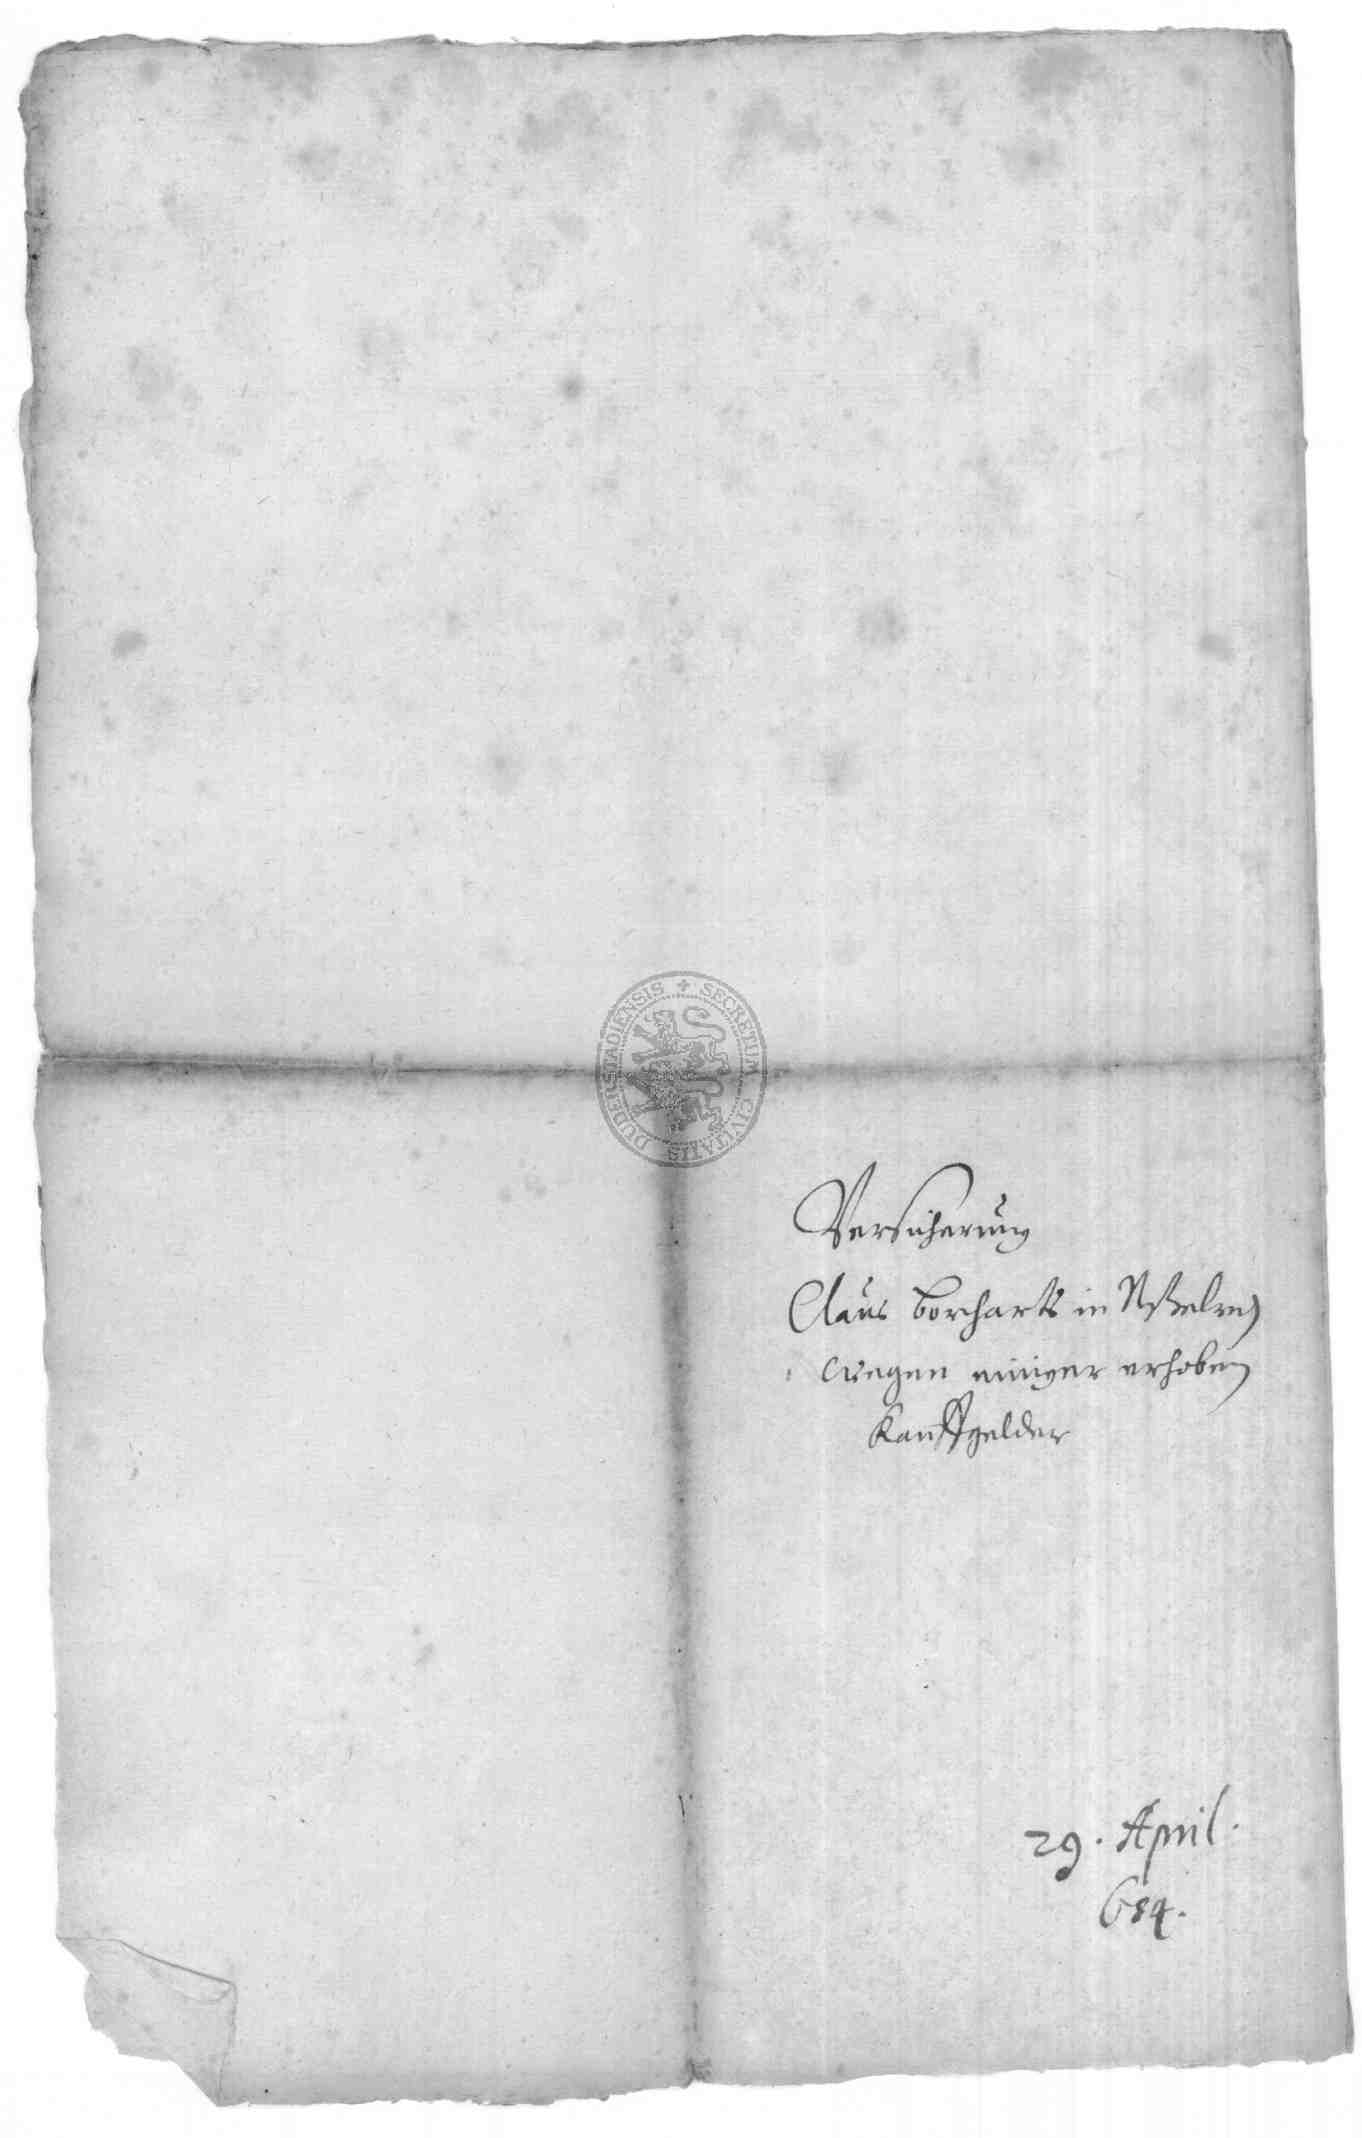 DUDERSTADIENSIS + SECRETUM CIVITATIS
Versicherung
Claus Borcharts in
wegen einiger erhoben
Kauffgelder
29. April.
684.